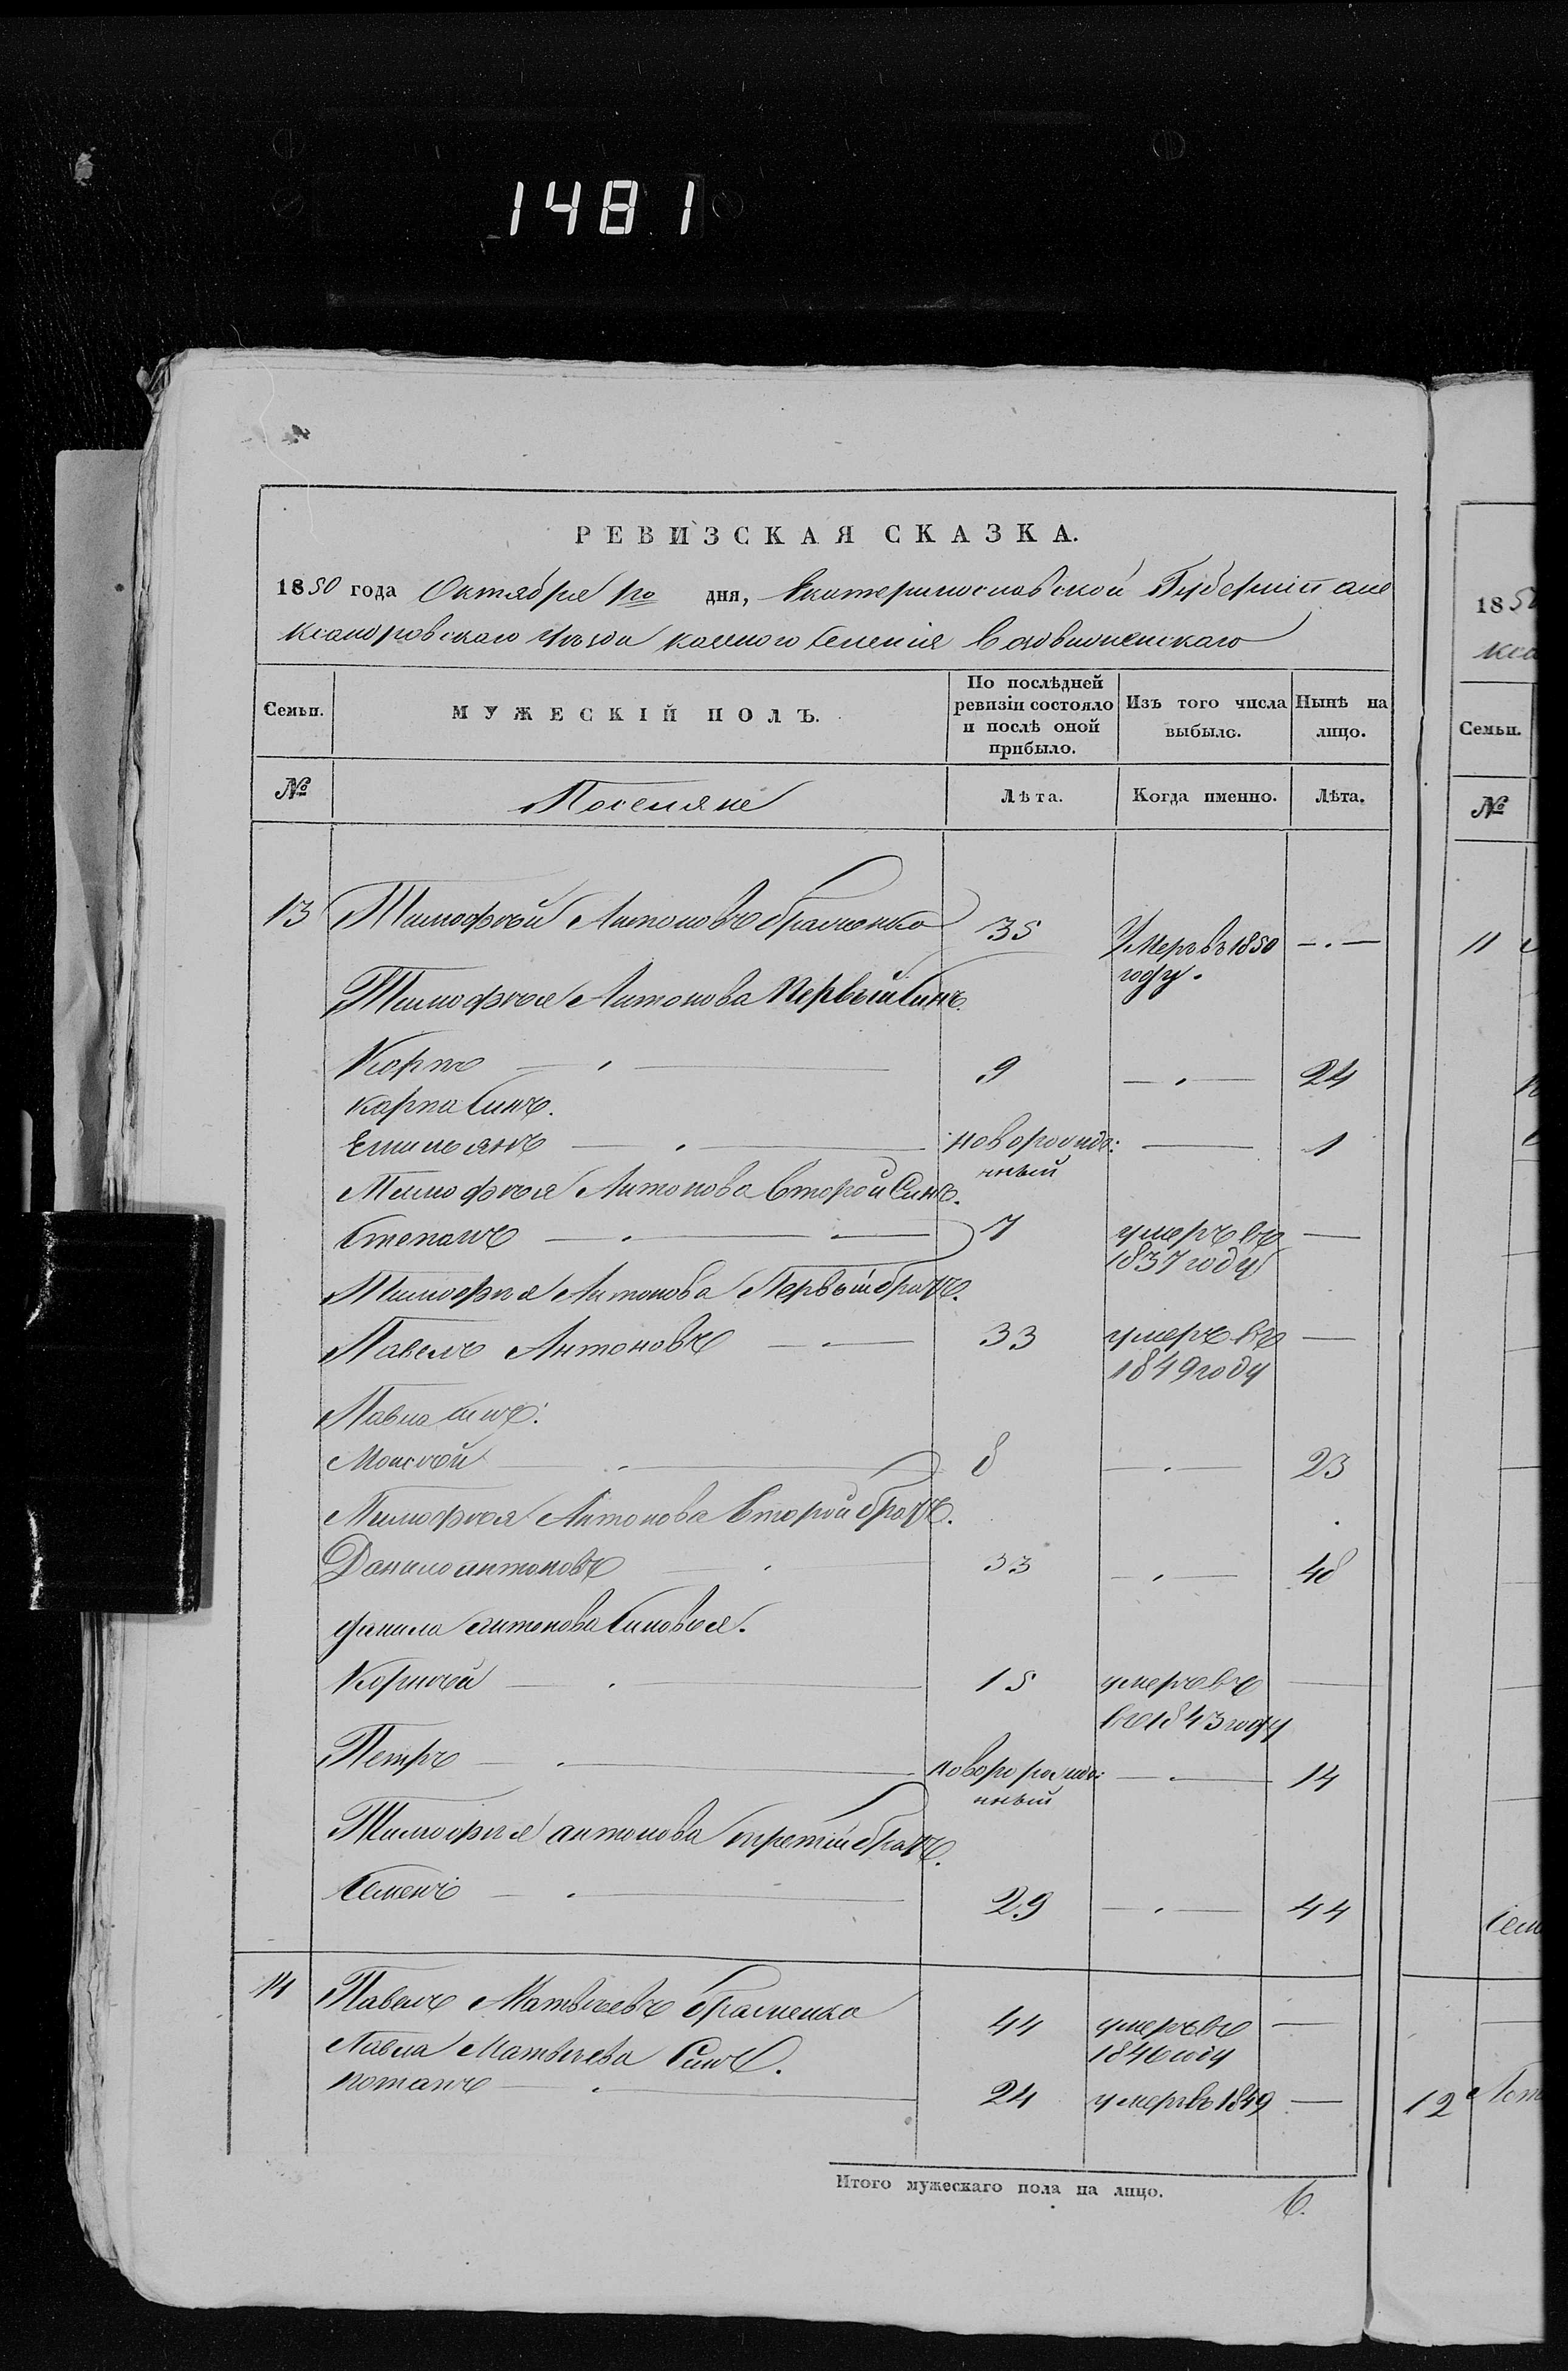 1481
РЕВИЗСКАЯ СКАЗКА.
1850 года Октября го дня, Екатеринославской Губерніи але
ксандровскаго уѣзда казеного Селенія
Семьи. МУЖЕСКІЙ ПОЛЪ. По послѣдней ревизіи состояло и послѣ оной прибыло. Изъ того числа выбыло. Нынѣ на лицо.
№ Поселяне Лѣта. Когда именно. Лѣта.
13 Тимофѣй Антоновъ 35 Умеръ въ 1850 году.
Тимофѣя Антонова первый Синъ.
Карпъ 9 24
Карпа Синъ.
Емильянъ новорожде: нный 1
Тимофѣя Антонова второй Синъ.
Степанъ 7 умеръ въ 1837 году
Тимофѣя Антонова Первый братъ.
Павелъ Антоновъ 33 умеръ въ 1849 году
Павла синъ.
Моисѣй 8 23
Тимофѣя Антонова Второй братъ.
Данило антоновъ 33 48
данила антонова Синовья.
Корнѣй 15 умеръ въ въ 1843 году
Петръ новорожде: нный 14
Тимофѣя антонова третій братъ.
Семенъ 29 44
14 Павелъ Матвѣевъ 44 умеръ въ 1846 году
Павла Матвѣева Синъ.
потапъ 24 умеръ въ 1849
Итого мужескаго пола на лицо. 6.
185
кса
Семьи.
№
11
Сем
12 Пот